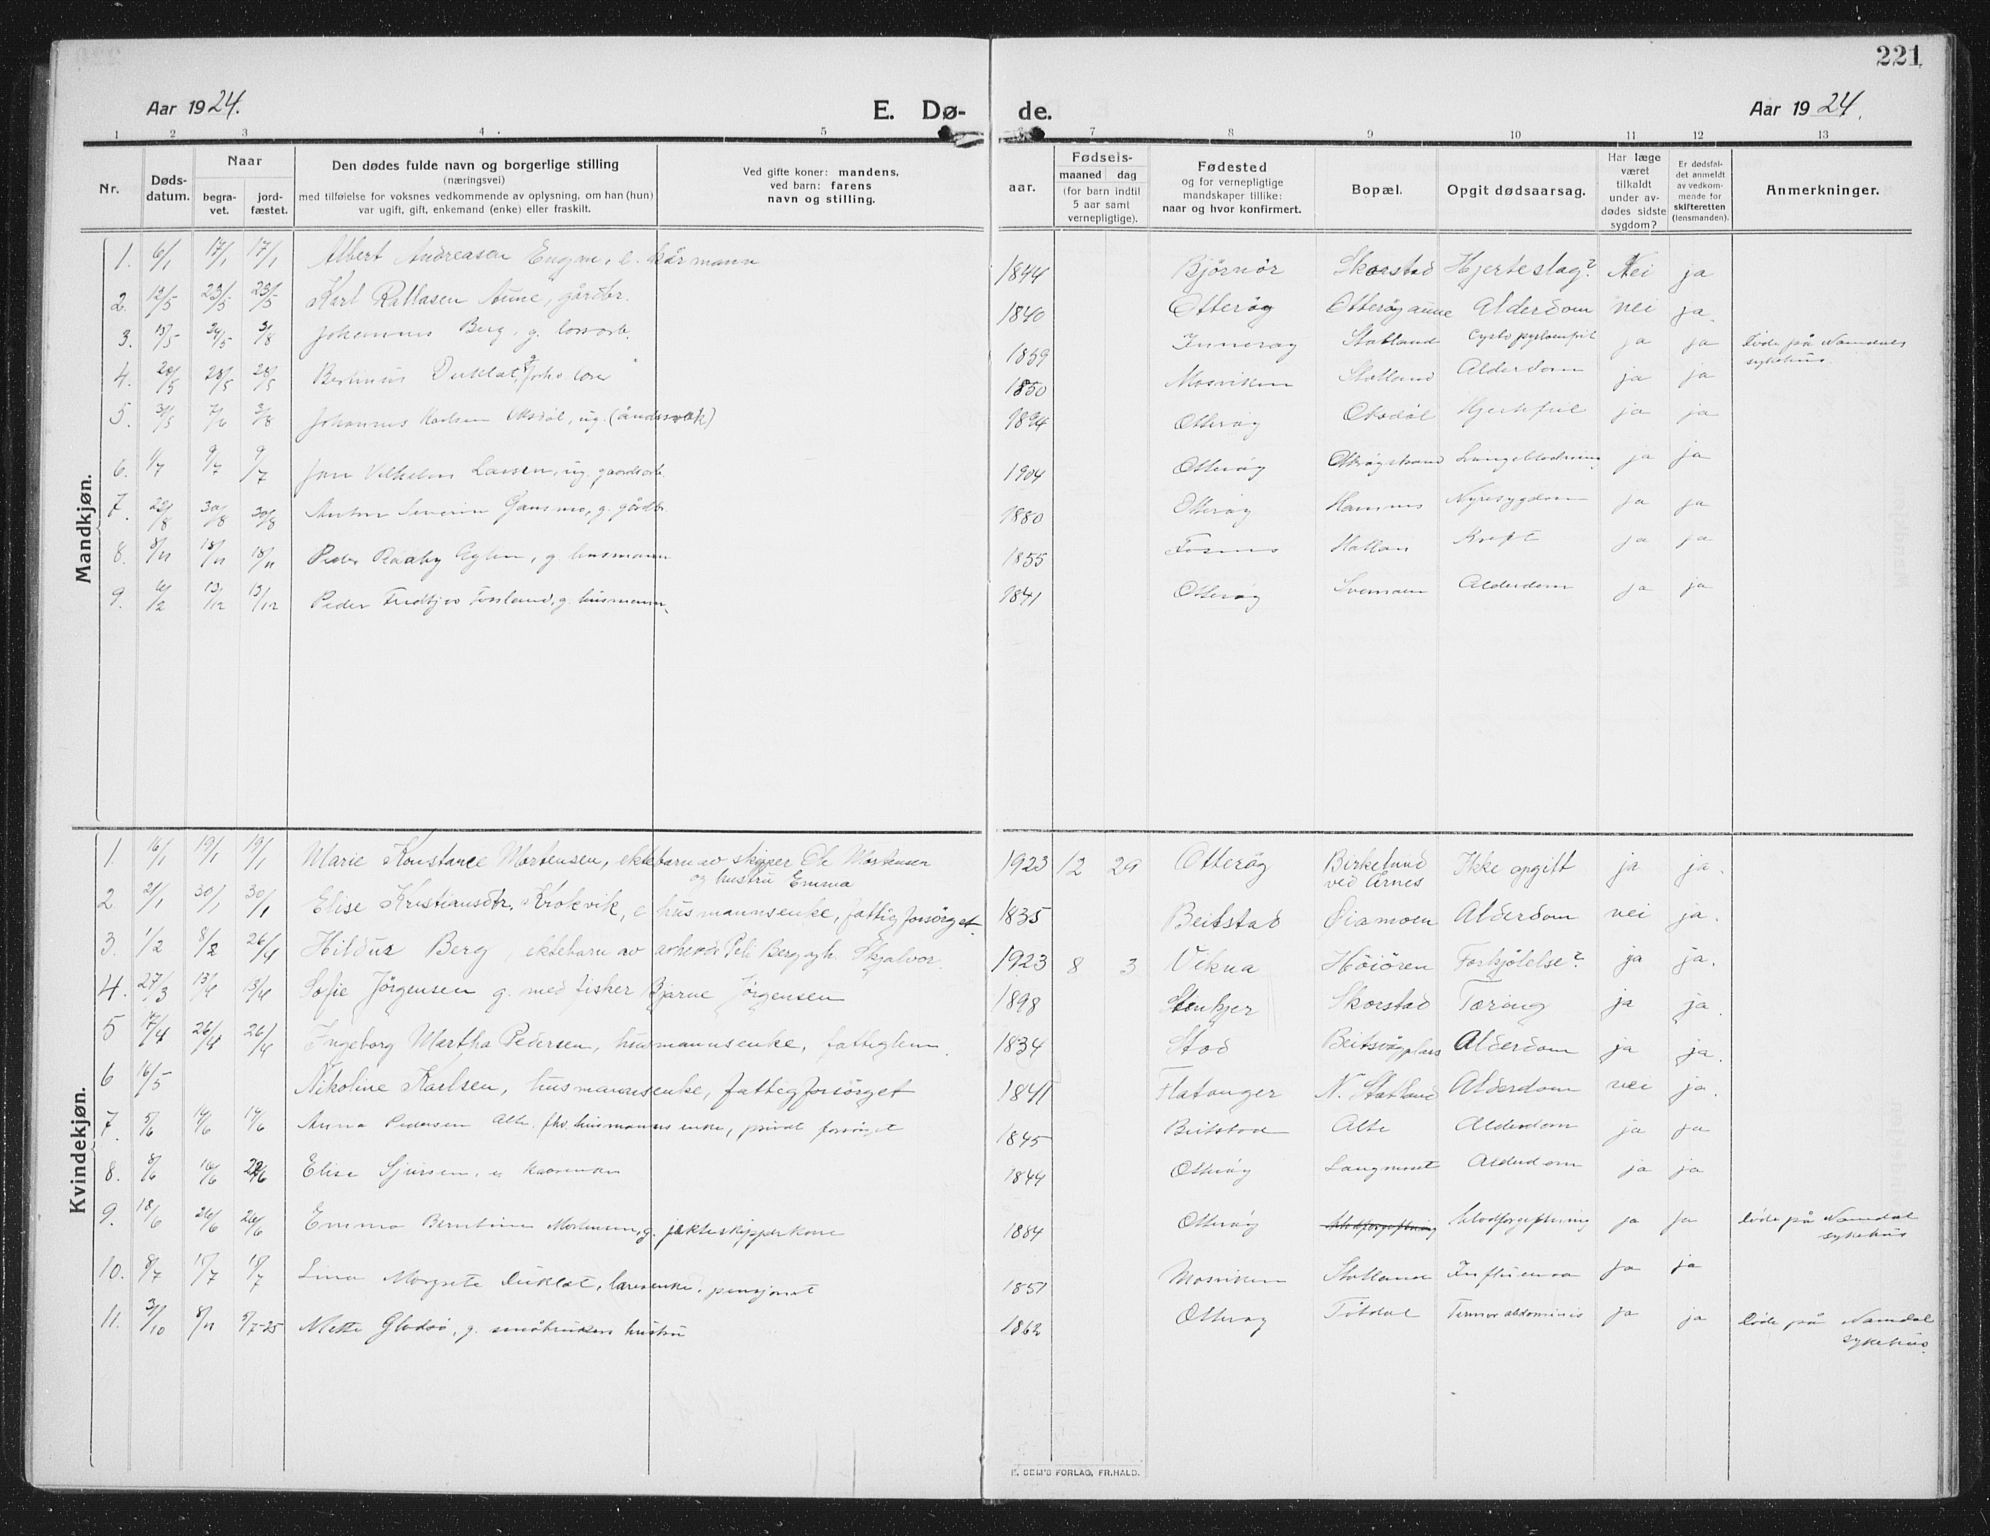 221
Aar 1924.
E. Dø-
de.
Aar 1924.
1 2 3 4 5 7 8 9 10 11 12 13
Nr.
Døds-
datum.
Naar
begra-
vet.
jord-
fæstet.
Den dødes fulde navn og borgerlige stilling
(næringsvei)
med tilføielse for voksnes vedkommende av oplysning, om han (hun)
var ugift, gift, enkemand (enke) eller fraskilt.
Ved gifte koner: mandens,
ved barn: farens
navn og stilling.
aar.
Fødsels-
maaned dag
(for barn indtil
5 aar samt
vernepligtige).
Fødested
og for vernepligtige
mandskaper tillike:
naar og hvor konfirmert.
Bopæl.
Opgit dødsaarsag.
Har læge
været
tilkaldt
under av-
dødes sidste
sygdom?
Er dødsfal-
det anmeldt
av vedkom-
mende for
skifteretten
(lensmanden).
Anmerkninger.
Mandkjøn.
1. 6/1 17/1 17/1 Albert Andreasen Engmo, e. kårmann 1844 Bjørnør Skorstad Hjerteslag? Nei ja
2. 12/5 23/5 23/5 Karl Aune, gårdbr. 1840 Otterøy Otterøyaune Alderdom nei ja.
3. 5 3/8 Johannes Berg, g. 1859 Inderøy Statland ja ja Døde på Namdals
sykehus.
4. 28/5 28/5 Bertinus Duklæt, 1850 Mosviken Statland Alderdom ja ja
5. 7/6 3/8 Johannes Karlsen ug. (åndssvak) 1894 Otterøy Hjertefeil ja ja
6. 1/7 9/7 9/7 Jon Vilhelm Larsen, ug. gaardsarb. 1904 Otterøy Lungeblødning ja ja
7. 22/8 30/8 30/8 Anton Severin Gansmo, g. gårdbr. 1880 Otterøy Hamnes Nyresygdom ja ja
8. 8/11 18/11 18/11 Peder g. husmann 1855 Fosnes Hallan Kreft ja ja
9. 13/12 13/12 Peder Fridtjov Fossland, g. husmann. 1841 Otterøy Svemoen Alderdom ja ja
Kvindekjøn.
1. 16/1 19/1 19/1 Marie Konstance Mortensen, ektebarn av skipper Ole Mortensen
og hustru Emma 1923 12 29 Otterøy Birkelund
ved Årnes Ikke opgitt ja ja.
2 21/1 30/1 30/1 Elise Kristiansdtr. Krokvik, e husmannsenke, fattigforsørget. 1835 Beitstad Øiamoen Alderdom nei ja.
3. 1/2 8/2 26/4 Hildur Berg, ektebarn av Berg og h. Skjalvor. 1923 8 3 Vikna Høiören Forkjølelse? ja ja.
4. 27/3 13/4 13/4 Sofie Jørgensen g. med fisker Bjarne Jørgensen 1898 Stenkjer Skorstad Tæring ja ja.
5 17/4 26/4 26/4 Ingeborg Martha Pedersen, husmannsenke, fattiglem. 1834 Stod Beitsvågplass Alderdom ja ja.
6 16/5 Nikoline Karlsen, husmannsenke, fattigforsørget 1841 Flatanger N. Statland Alderdom nei ja.
7. 5/6 14/6 14/6 Anna Pedersen Alte, fhv. husmanns enke, privat forsørget 1845 Beitstad Alte Alderdom ja ja
8. 8/6 16/6 Elise Sjursen, e kaarenke 1844 Otterøy Alderdom ja ja
9. 18/6 26/6 26/6 Emma Berntine Mortensen, g. jakteskipperkone 1884 Otterøy blodforgiftning blodforgiftning ja ja Døde på Namdal
sykehus
10. 8/7 18/7 18/7 Lina Margrete Duklæt, pensjonat 1851 Mosviken Statland Influensa ja ja
11. 3/10 8/11 5/7-25 Mette Gladsø, g. småbrukers hustru 1862 Otterøy Tøtdal Tumor abdominis ja ja Døde på Namdal
sykehus.
E. SEM'S FORLAG, FR.HALD.